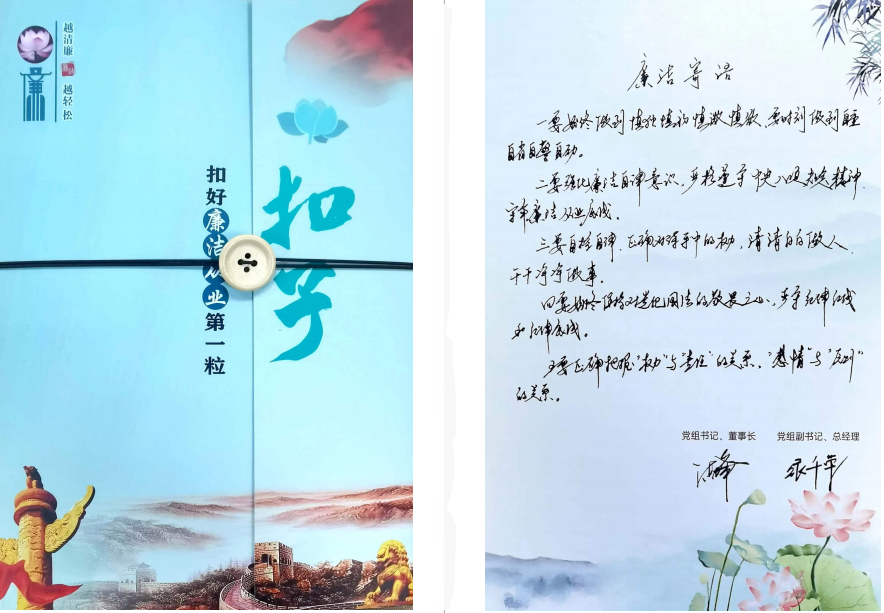 越清廉
越轻松
廉
扣好廉洁从业第一粒
扣子
廉洁寄语
一要始终做到慎独慎初慎微慎欲,要时刻做到自重
自省自警自励。
二要强化廉洁自律意识,严格遵守中央八项规定精神,
守牢廉洁从业底线。
三要自控自律,正确对待手中的权力,清清白白做人,
干干净净做事。
四要始终保持对党纪国法的敬畏之心,严守纪律红线
和法律底线。
五要正确把握"权力"与"责任"的关系,"感情"与"原则"
的关系。
党组书记、董事长 党组副书记、总经理